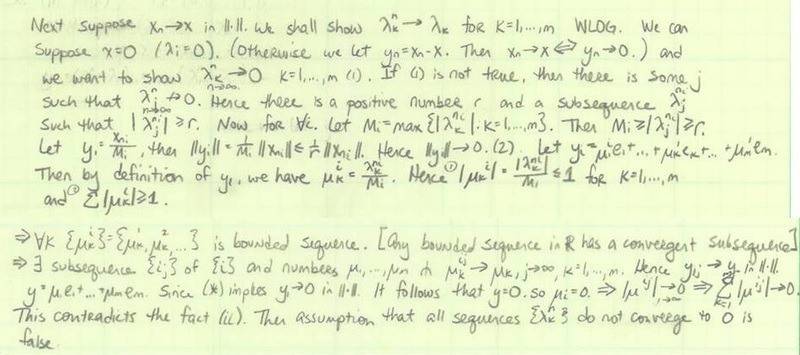 Next suppose xₙ→x in ||·||. We shall show λₖⁿ→λₖ for k=1,...,m WLOG. We can
Suppose x=0 (λi=0). (Otherwise we let yn=xn-x. Then xn→x⇔yn→0.) and
we want to show λₖⁿ→0 n→∞ k=1,...,m (1). If (1) is not true, then there is some j
such that λⱼⁿ↛0 n→∞. Hence there is a positive number r and a subsequence λⱼⁿⁱ
Such that |λⱼⁿⁱ|≥r. Now for ∀i. Let Mi=max{|λₖⁿⁱ|:k=1,...,m}. Then Mi≥|λⱼⁿⁱ|≥r.
Let yi=xni/Mi, then ||yi||=1/Mi ||xni||≤1/r ||xni||. Hence ||yi||→0. (2). Let yi=μ₁ⁱe₁+...+μₖⁱeₖ+...+μₘⁱeₘ.
Then by definition of yi, we have μₖⁱ=λₖⁿⁱ/Mi. Hence ① |μₖⁱ|=|λₖⁿⁱ|/Mi≤1 for k=1,...,m
and ② ∑|μₖⁱ|≥1.
⇒∀k {μₖⁱ}={μₖ¹,μₖ²,...} is bounded sequence. [Any bounded sequence in R has a convergent subsequence]
⇒∃ subsequence {ij} of {i} and numbers μ₁,...,μm μₖⁱʲ→μₖ, j→∞, k=1,...,m. Hence yij→y in ||·||.
y=μ₁e₁+...+μmem. Since (*) implies yi→0 in ||·||. It follows that y=0. so μi=0. ⇒|μⁱʲ|→0 j→∞ ⇒ ∑|μⁱʲ|→0.
This contradicts the fact (ii). The assumption that all sequences {λₖⁿ} do not converge to 0 is
false.